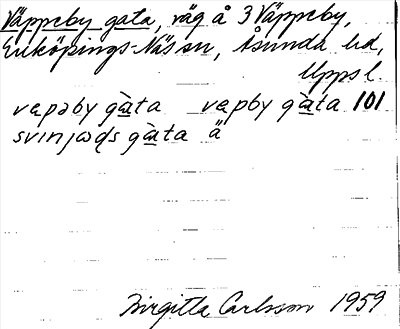 Väppeby gata, väg å 3 Väppeby,
Enköpings-Näs sn, Åsunda hd,
Uppsl.
væpəby gàta væpby gàta 101
svinjaɖs gàta ä
Birgitta Carlsson 1959